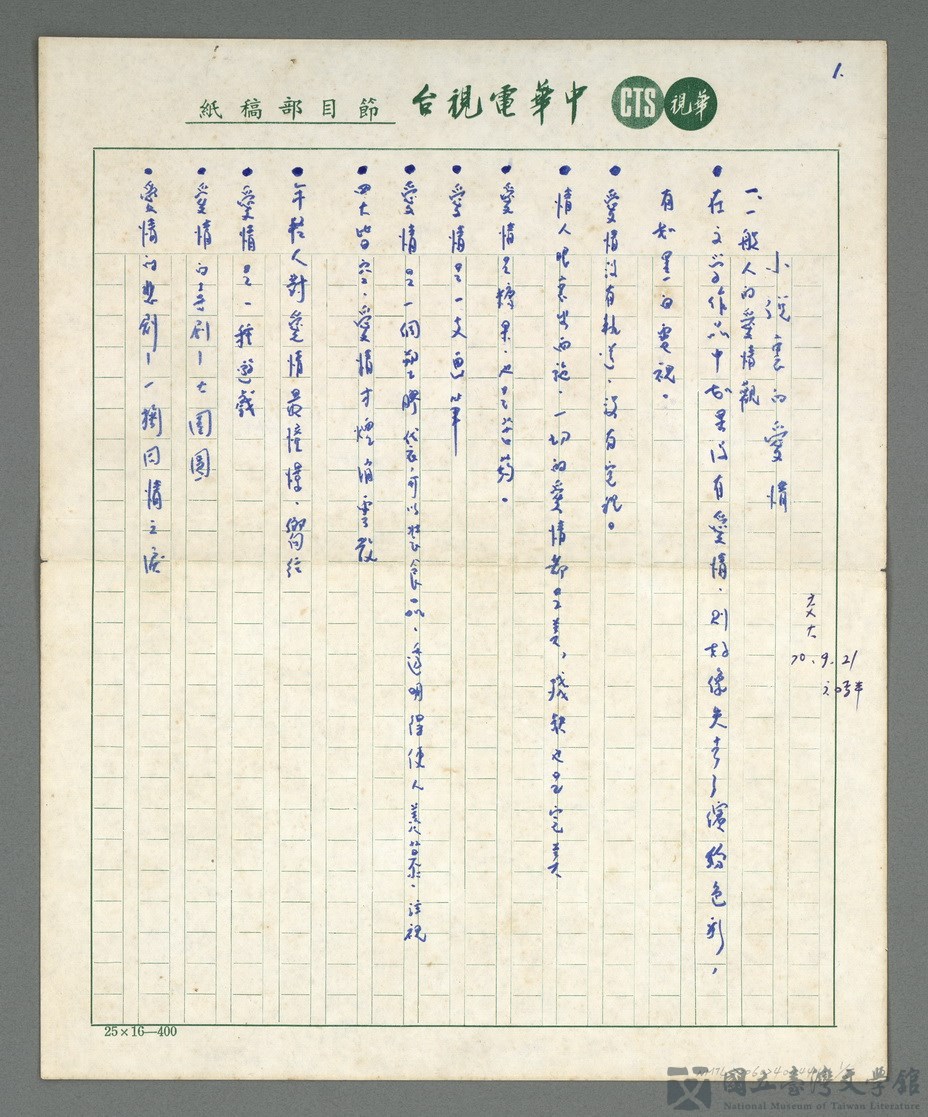 1.
中華電視台 節目部稿紙
CTS 華視
小說裏的愛情
文大
70.9.21
一、一般人的愛情觀
•在文學作品中如果沒有愛情,則好像失去了繽紛色彩,
有如黑白電視。
•愛情沒有軌道,沒有定規。
•情人眼裏出西施,一切的愛情都是美,殘缺也是完美
•愛情是糖果,也是苦藥。
•愛情是一支畫筆
•愛情是一個塑膠代衣,可以裝食品,透明得使人羨慕、注視
•四大皆空,愛情才煙消雲散
•年輕人對愛情最憧憬、嚮往
•愛情是一種遊戲
•愛情的喜劇—大團圓
•愛情的悲劇—一掬同情之淚
25×16—400
國立臺灣文學館
National Museum of Taiwan Literature